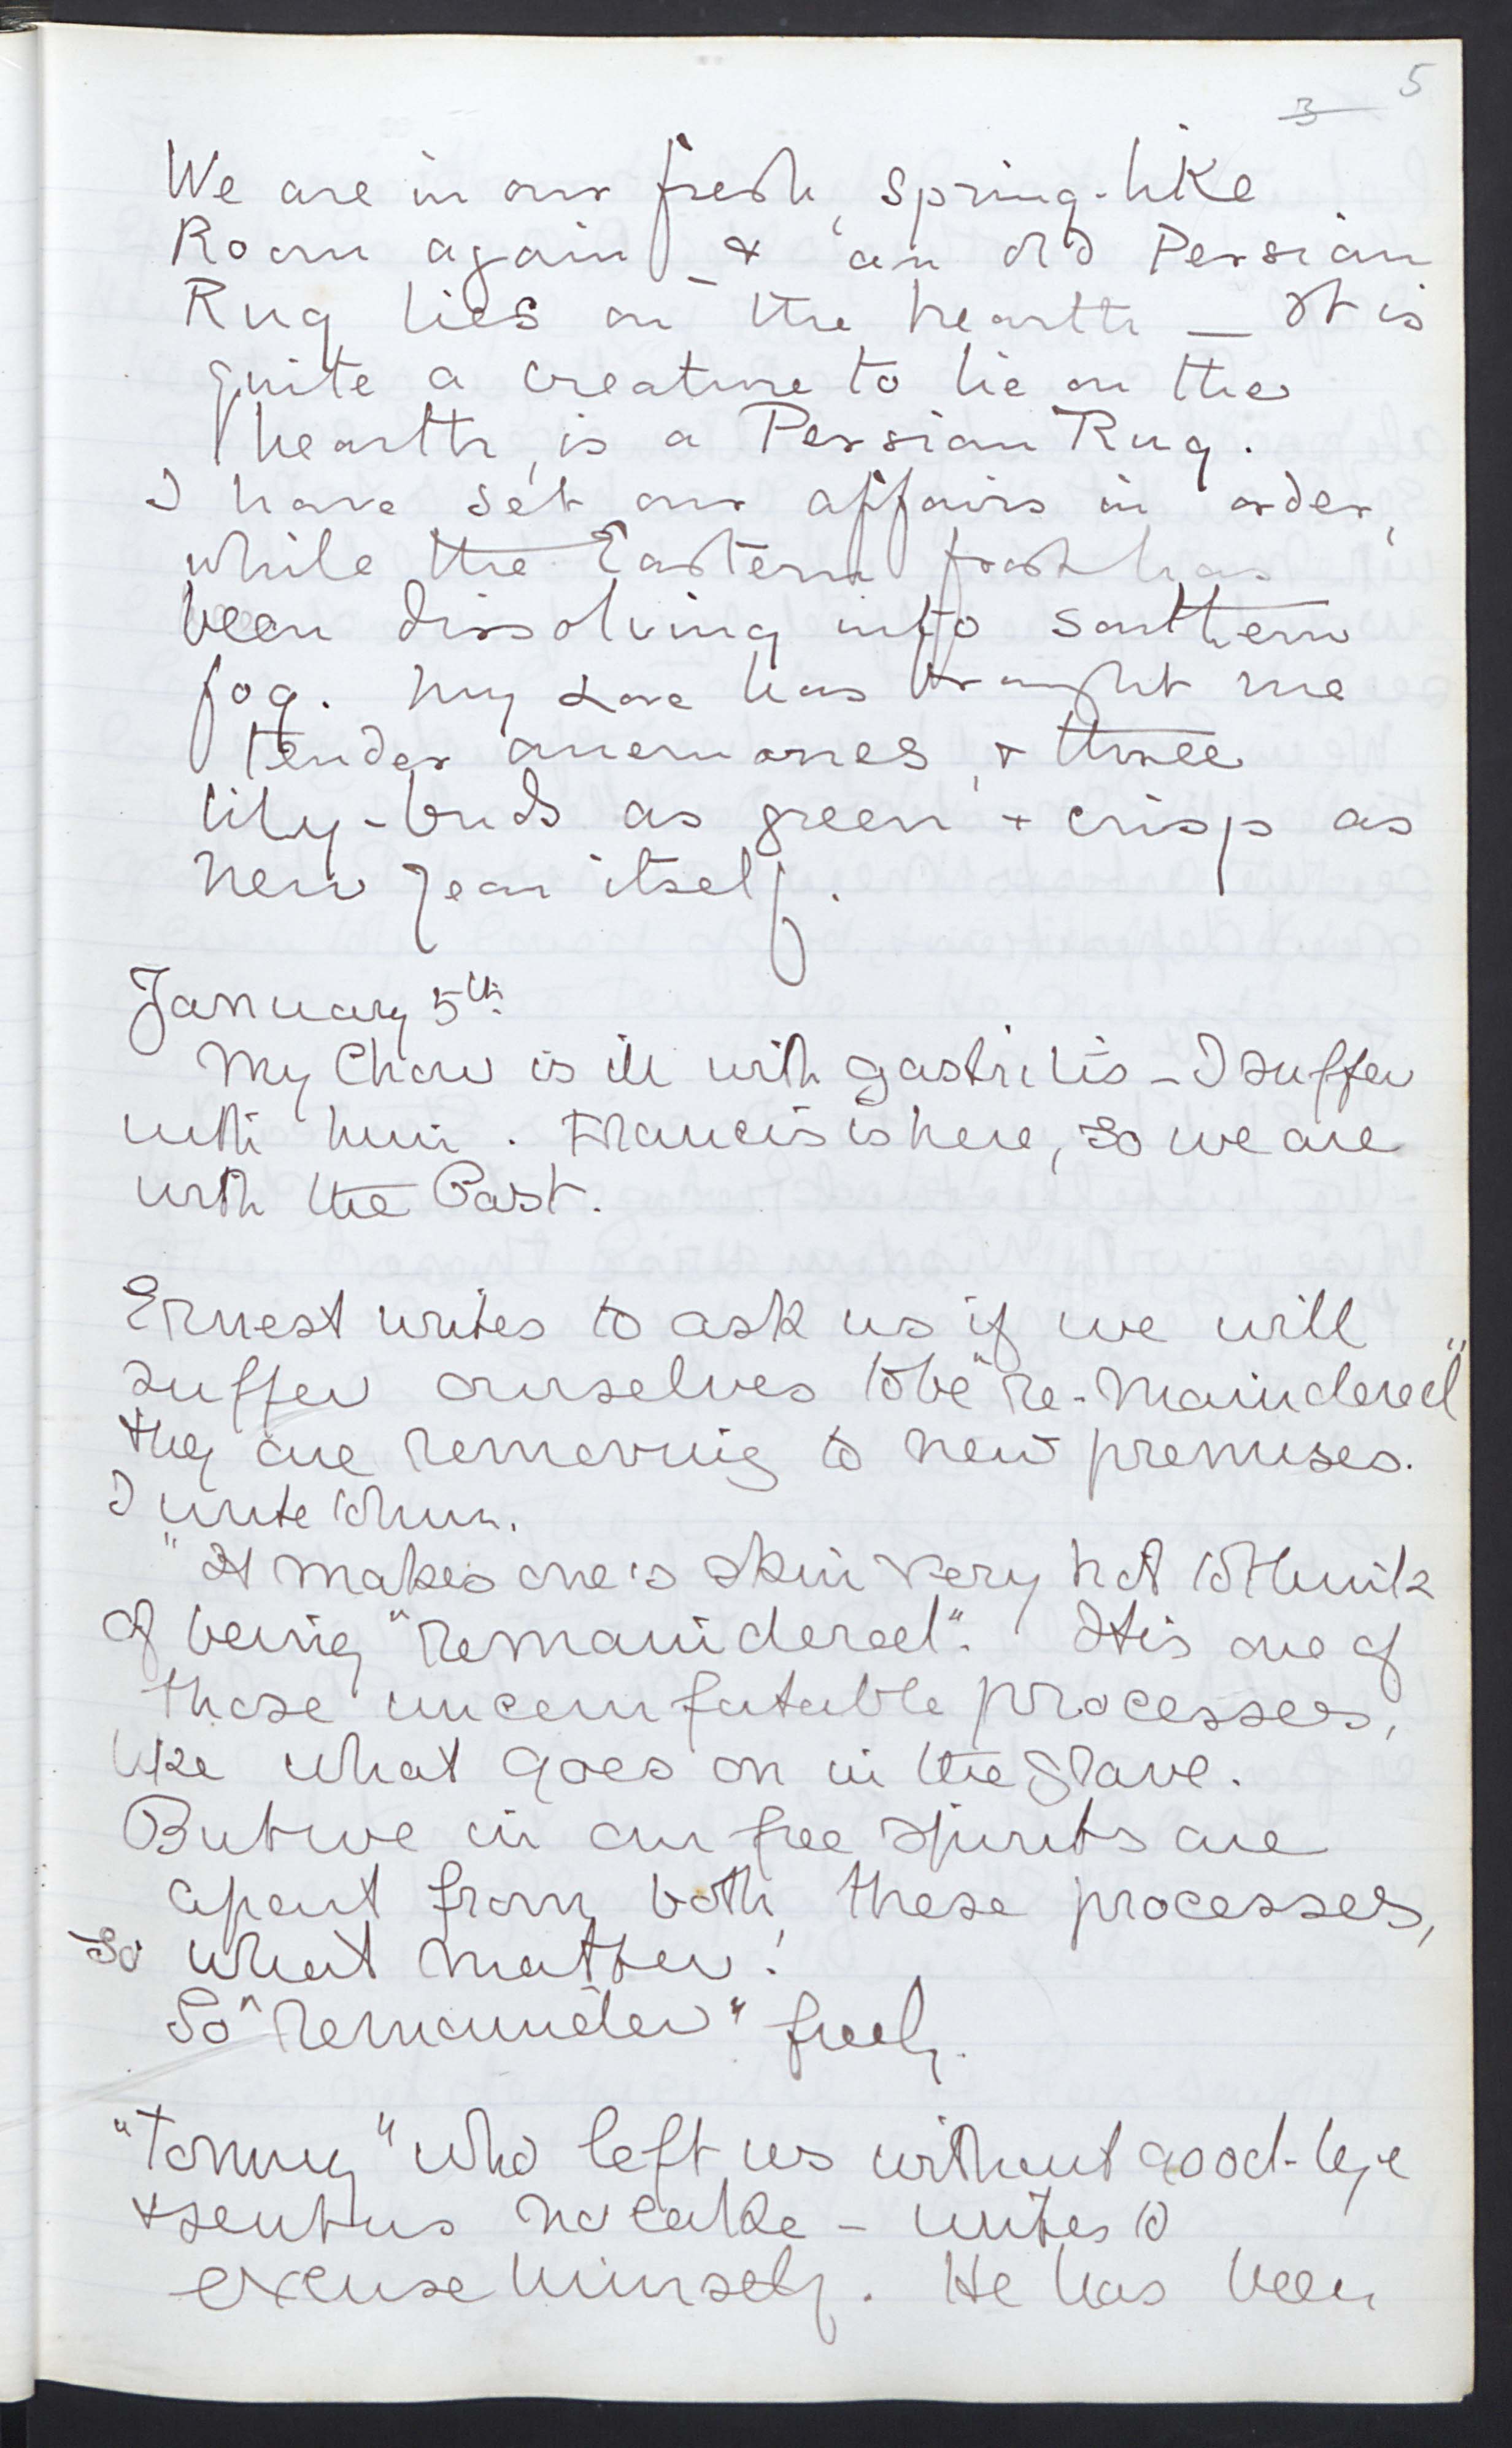 5
3
We are in our fresh, spring-like
Room again & an old Persian
Rug lies on the hearth — It is
quite a creature to lie on the
hearth, is a Persian Rug.
I have set our affairs in order,
while the Eastern frost has
been dissolving into southern
fog. My Love has brought me
tender anemones, & three
lily-buds as green & crisp as
New Year itself.
January 5th.
My Chow is ill with gastritis – I suffer
with him. Francis is here, so we are
with the Past.
Ernest writes to ask us if we will
suffer ourselves to be "re-maindered"
they are removing to new premises.
I write to him.
"It makes one's skin very hot to think
of being "remaindered". It is one of
those uncomfortable processes,
like what goes on in the grave.
But we in our free spirits are
apart from both these processes,
so what matter!
So "remainder" freely.
"Tommy" who left us without good-bye
& sent us no cake – writes to
excuse himself. He has been